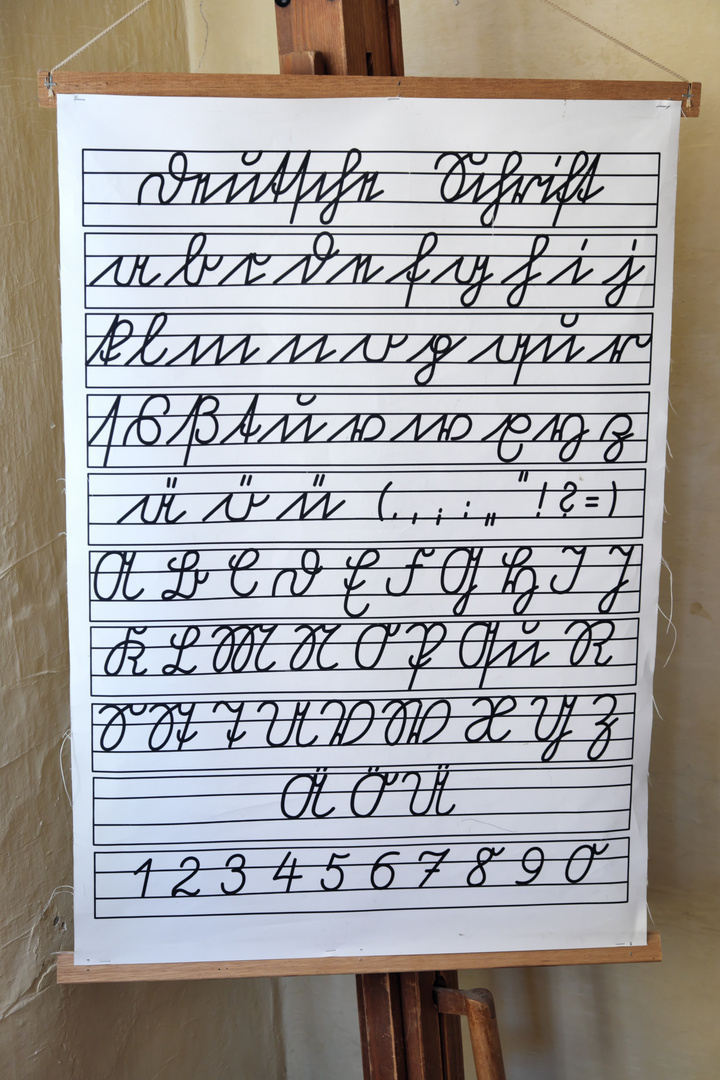 Deutsche Schrift
a b c d e f g h i j
k l m n o p q u r
s ß ß t u v w x y z
ä ö ü ( . , ; : „ “ ! ? = )
A B C D E F G H I J
K L M N O P Qu R
S St T U V W X Y Z
Ä Ö Ü
1 2 3 4 5 6 7 8 9 0